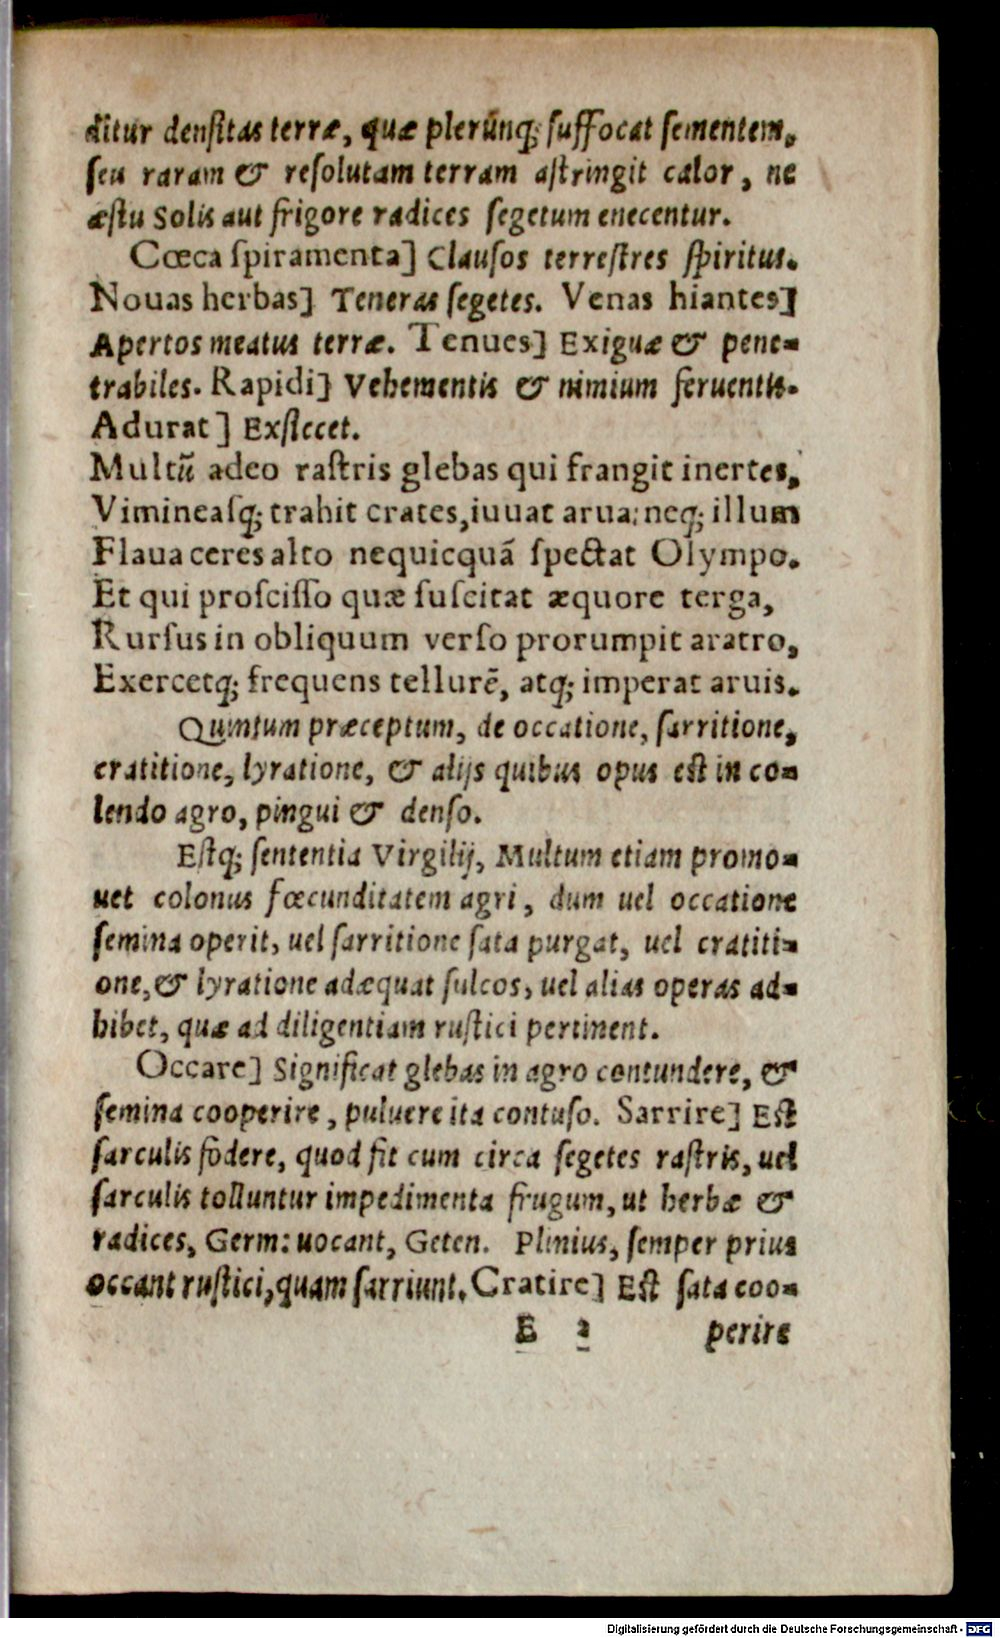 ditur densitas terræ, quæ plerũnq; suffocat sementem,
seu raram & resolutam terram astringit calor, ne
æstu Solis aut frigore radices segetum enecentur.
Cœca spiramenta] Clausos terrestres spiritus.
Nouas herbas] Teneras segetes. Venas hiantes]
Apertos meatus terræ. Tenues] Exiguæ & pene-
trabiles. Rapidi] Vehementis & nimium feruentis.
Adurat] Exsiccet.
Multũ adeo rastris glebas qui frangit inertes,
Vimineasq; trahit crates, iuuat arua: neq; illum
Flaua ceres alto nequicquã spectat Olympo.
Et qui proscisso quæ suscitat æquore terga,
Rursus in obliquum verso prorumpit aratro,
Exercetq; frequens tellurẽ, atq; imperat aruis.
Quintum præceptum, de occatione, sarritione,
cratitione, lyratione, & alijs quibus opus est in co-
lendo agro, pingui & denso.
Estq; sententia Virgilij, Multum etiam promo-
uet colonus fœcunditatem agri, dum uel occatione
semina operit, uel sarritione sata purgat, uel cratiti-
one, & lyratione adæquat sulcos, uel alias operas ad-
hibet, quæ ad diligentiam rustici pertinent.
Occare] Significat glebas in agro contundere, &
semina cooperire, puluere ita contuso. Sarrire] Est
sarculis fodere, quod fit cum circa segetes rastris, uel
sarculis tolluntur impedimenta frugum, ut herbæ &
radices, Germ: uocant, Geten. Plinius, semper prius
occant rustici, quam sarriunt. Cratire] Est sata coo-
E 2 perire
Digitalisierung gefördert durch die Deutsche Forschungsgemeinschaft - DFG